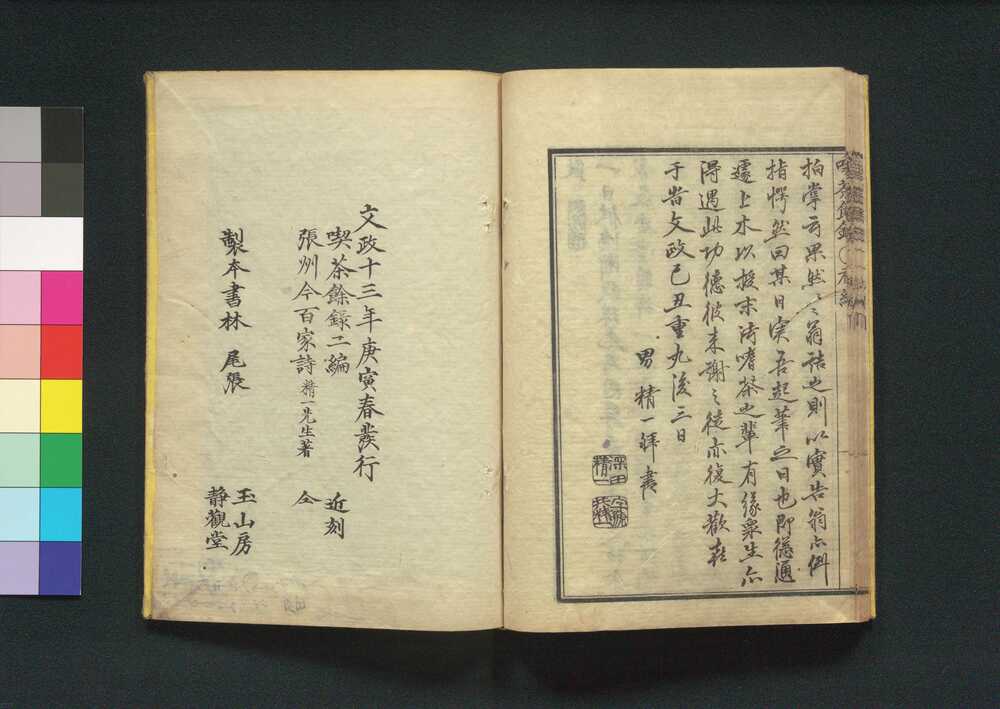 拍掌云果然々々翁詰也則以實告翁亦倒
指愕然曰某日実吾起筆之日也即德通
遽上木以投末濤嗜茶也輩有緣衆生亦
得遇此功德彼来謝之徒亦復大歡喜
于皆文政己丑重九後三日
男精一拜書
文政十三年庚寅春發行
喫茶餘録二編 近刻
張州今百家詩 精一先生著 仝
製本書林 尾張
玉山房
靜觀堂